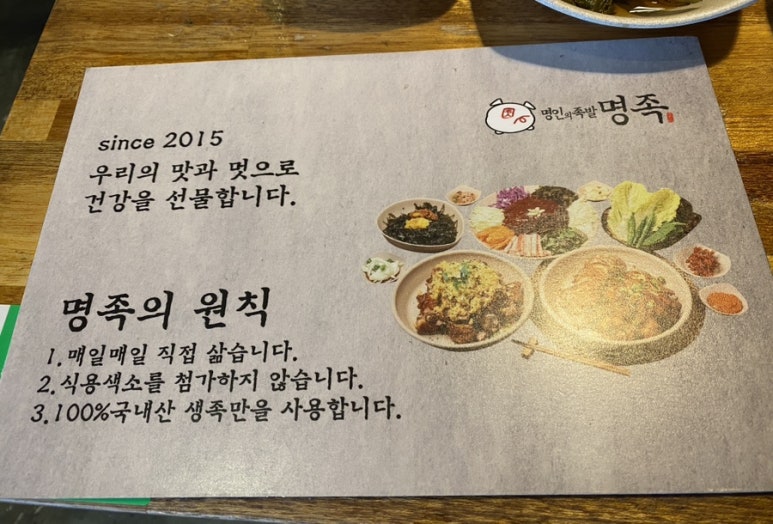 명인의족발 명족
since 2015
우리의 맛과 멋으로
건강을 선물합니다.
명족의 원칙
1.매일매일 직접 삶습니다.
2.식용색소를 첨가하지 않습니다.
3.100%국내산 생족만을 사용합니다.